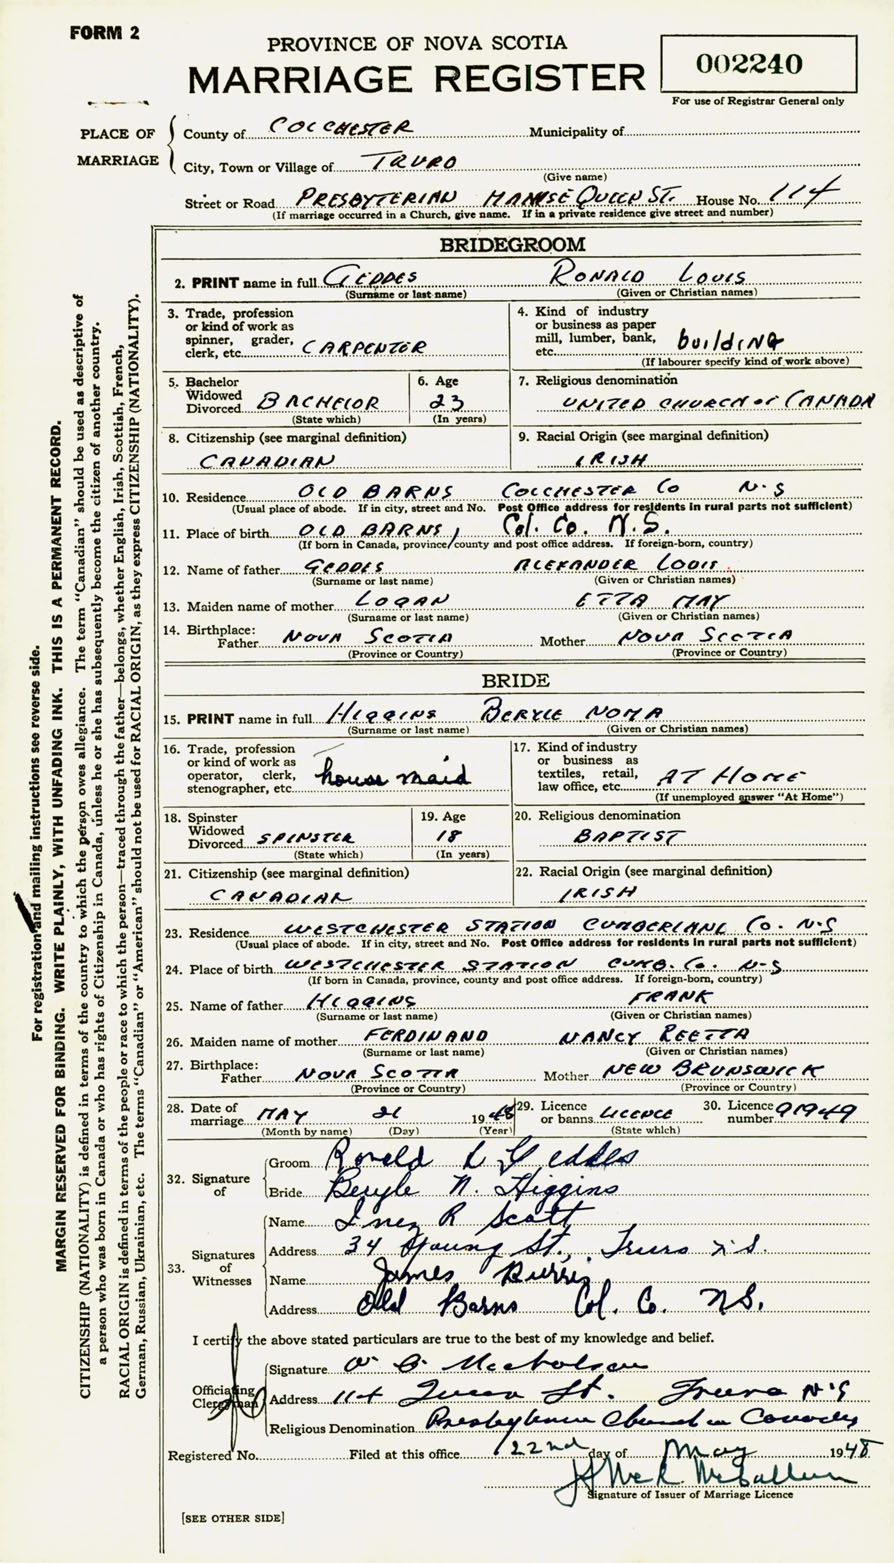 FORM 2
PROVINCE OF NOVA SCOTIA
MARRIAGE REGISTER
002240
For use of Registrar General only
PLACE OF MARRIAGE
County of COLCHESTER Municipality of
City, Town or Village of TRURO
(Give name)
Street or Road PRESBYTERIAN MANSE QUEEN ST. House No. 114
(If marriage occurred in a Church, give name. If in a private residence give street and number)
BRIDEGROOM
2. PRINT name in full GEDDES RONALD LOUIS
(Surname or last name) (Given or Christian names)
3. Trade, profession or kind of work as spinner, grader, clerk, etc. CARPENTER
4. Kind of industry or business as paper mill, lumber, bank, etc. building
(If labourer specify kind of work above)
5. Bachelor Widowed Divorced BACHELOR
(State which)
6. Age 23
(In years)
7. Religious denomination
UNITED CHURCH OF CANADA
8. Citizenship (see marginal definition)
CANADIAN
9. Racial Origin (see marginal definition)
IRISH
10. Residence OLD BARNS COLCHESTER CO N-S
(Usual place of abode. If in city, street and No. Post Office address for residents in rural parts not sufficient)
11. Place of birth OLD BARNS, Col. Co. N.S.
(If born in Canada, province/county and post office address. If foreign-born, country)
12. Name of father GEDDES ALEXANDER LOUIS
(Surname or last name) (Given or Christian names)
13. Maiden name of mother LOGAN ETTA MAY
(Surname or last name) (Given or Christian names)
14. Birthplace:
Father NOVA SCOTIA Mother NOVA SCOTIA
(Province or Country) (Province or Country)
BRIDE
15. PRINT name in full HIGGINS BERYLE NOMA
(Surname or last name) (Given or Christian names)
16. Trade, profession or kind of work as operator, clerk, stenographer, etc. house maid
17. Kind of industry or business as textiles, retail, law office, etc. AT HOME
(If unemployed answer "At Home")
18. Spinster Widowed Divorced SPINSTER
(State which)
19. Age 18
(In years)
20. Religious denomination
BAPTIST
21. Citizenship (see marginal definition)
CANADIAN
22. Racial Origin (see marginal definition)
IRISH
23. Residence WESTCHESTER STATION CUMBERLAND CO. N-S
(Usual place of abode. If in city, street and No. Post Office address for residents in rural parts not sufficient)
24. Place of birth WESTCHESTER STATION CUMB. CO. N-S
(If born in Canada, province, county and post office address. If foreign-born, country)
25. Name of father HIGGINS FRANK
(Surname or last name) (Given or Christian names)
26. Maiden name of mother FERDINAND NANCY REETTA
(Surname or last name) (Given or Christian names)
27. Birthplace:
Father NOVA SCOTIA Mother NEW BRUNSWICK
(Province or Country) (Province or Country)
28. Date of marriage MAY 21 1948
(Month by name) (Day) (Year)
29. Licence or banns LICENCE
(State which)
30. Licence number 91949
32. Signature of
Groom Ronald L Geddes
Bride Beryle N. Higgins
33. Signatures of Witnesses
Name Inez R Scott
Address 34 Young St., Truro N.S.
Name James Burris
Address Old Barns Col. Co. NS.
I certify the above stated particulars are true to the best of my knowledge and belief.
Officiating Clergyman
Signature
Address 114 Queen St. Truro N-S
Religious Denomination Presbyterian Church in Canada
Registered No. Filed at this office 22nd day of May 1948
Signature of Issuer of Marriage Licence
[SEE OTHER SIDE]
For registration and mailing instructions see reverse side.
MARGIN RESERVED FOR BINDING. WRITE PLAINLY, WITH UNFADING INK. THIS IS A PERMANENT RECORD.
CITIZENSHIP (NATIONALITY) is defined in terms of the country to which the person owes allegiance. The term "Canadian" should be used as descriptive of
a person who was born in Canada or who has rights of Citizenship in Canada, unless he or she has subsequently become the citizen of another country.
RACIAL ORIGIN is defined in terms of the people or race to which the person—traced through the father—belongs, whether English, Irish, Scottish, French,
German, Russian, Ukrainian, etc. The terms "Canadian" or "American" should not be used for RACIAL ORIGIN, as they express CITIZENSHIP (NATIONALITY).